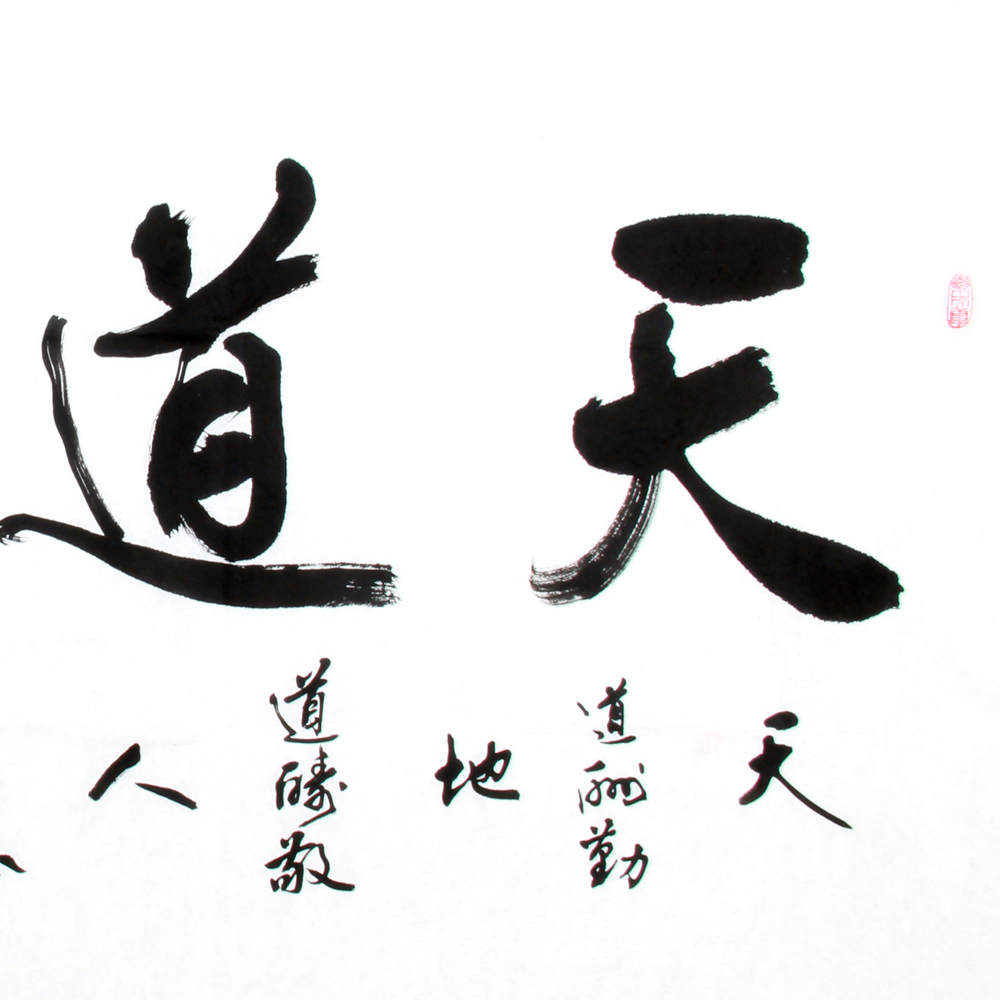 天道
天
道酬勤
地
道酬敬
人